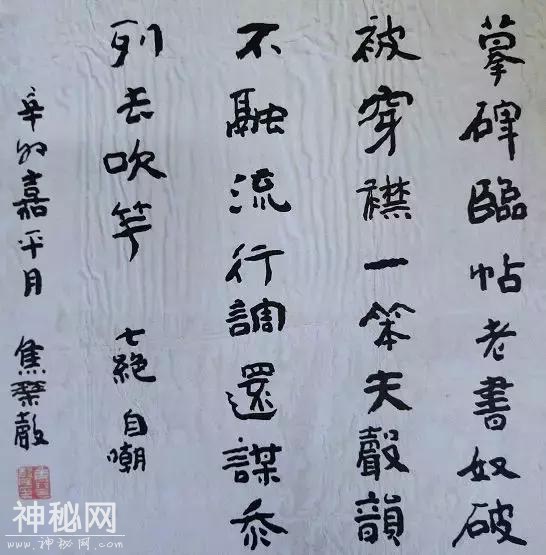 摹碑臨帖老書奴破
被穿襟一笨夫聲韻
不融流行調還謀忝
列去吹竽 七絕 自嘲
辛卯嘉平月 焦
神秘网